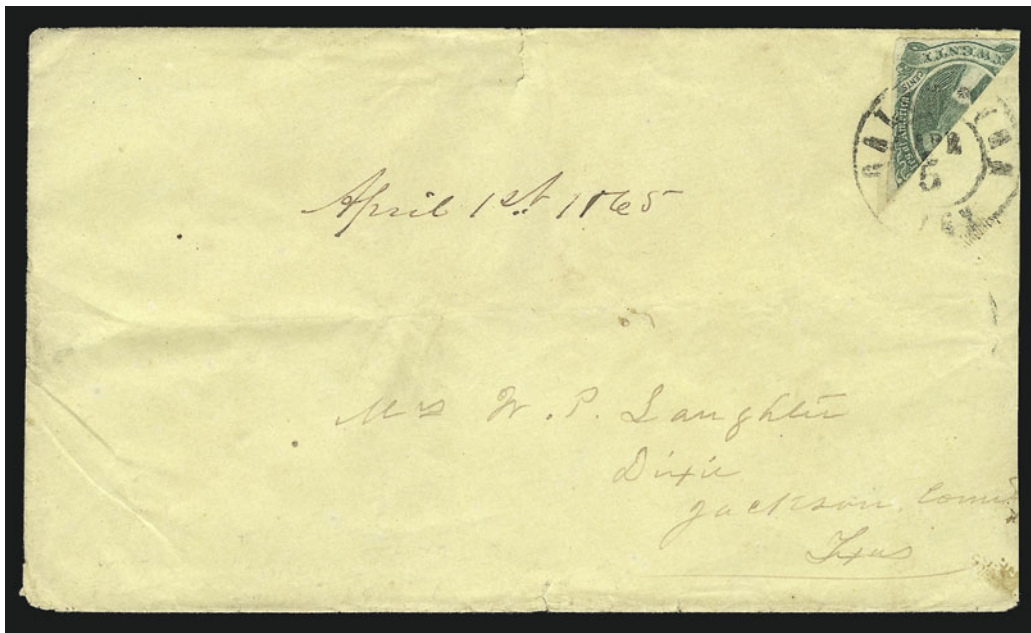 TWENTY
GAL
APR
5
TEX
April 1st 1865
Mrs W. P. Laughter
Dixie
Jackson County
Texas